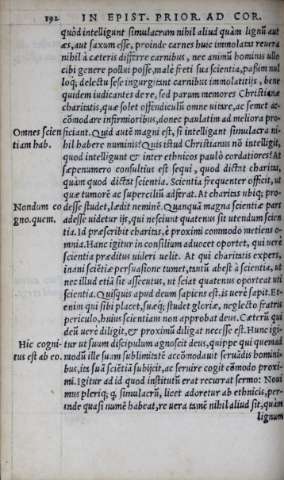 192 IN EPIST. PRIOR. AD COR.
quòd intelligunt simulacrum nihil aliud quàm lignũ aut
æs, aut saxum esse, proinde carnes huic immolatas reuera
nihil à cæteris differre carnibus, nec animũ hominis ullo
cibi genere pollui posse, malè freti sua scientia, passim nul
loq; delectu sese ingurgitant carnibus immolatitiis, bene
quidem iudicantes de re, sed parum memores Christianæ
charitatis, quæ solet offendiculũ omne uitare, ac semet ac-
cõmodare infirmioribus, donec paulatim ad meliora pro-
Omnes scien
tiam hab.
ficiant. Quid autẽ magni est, si intelligant simulacra ni-
hil habere numinis? Quis istud Christianus nõ intelligit,
quod intelligunt & inter ethnicos paulò cordatiores? At
sæpenumero consultius est sequi, quod dictat charitas,
quàm quod dictat scientia. Scientia frequenter officit, ut
quæ tumorẽ ac superciliũ adferat. At charitas ubiq; pro-
Nondum co
gno. quem.
desse studet, lædit neminẽ. Quanquã magna scientiæ pars
adesse uidetur ijs, qui nesciunt quatenus sit utendum scien
tia. Id præscribit charitas, è proximi commodo metiens o-
mnia. Hanc igitur in consilium aduocet oportet, qui uerè
scientia præditus uideri uelit. At qui charitatis expers,
inani sciẽtiæ persuasione tumet, tantũ abest à scientia, ut
nec illud etiã sit assecutus, ut sciat quatenus oporteat uti
scientia. Quisquis apud deum sapiens est, is uerè sapit. Et-
enim qui sibi placet, suæq; studet gloriæ, neglecto fratris
periculo, huius scientiam non approbat deus. Cæterũ qui
deũ uerè diligit, & proximũ diligat necesse est. Hunc igi-
Hic cogni-
tus est ab eo.
tur ut suum discipulum agnoscit deus, quippe qui quemad
modũ ille suam sublimitatẽ accõmodauit seruãdis homini-
bus, ita suã sciẽtiã subijcit, ac seruire cogit cõmodo proxi-
mi. Igitur ad id quod institutũ erat recurrat sermo: Noui
mus pleriq; q, simulacrũ, licet adoretur ab ethnicis, per-
inde quasi numẽ habeat, re uera tamẽ nihil aliud sit, quàm
lignum